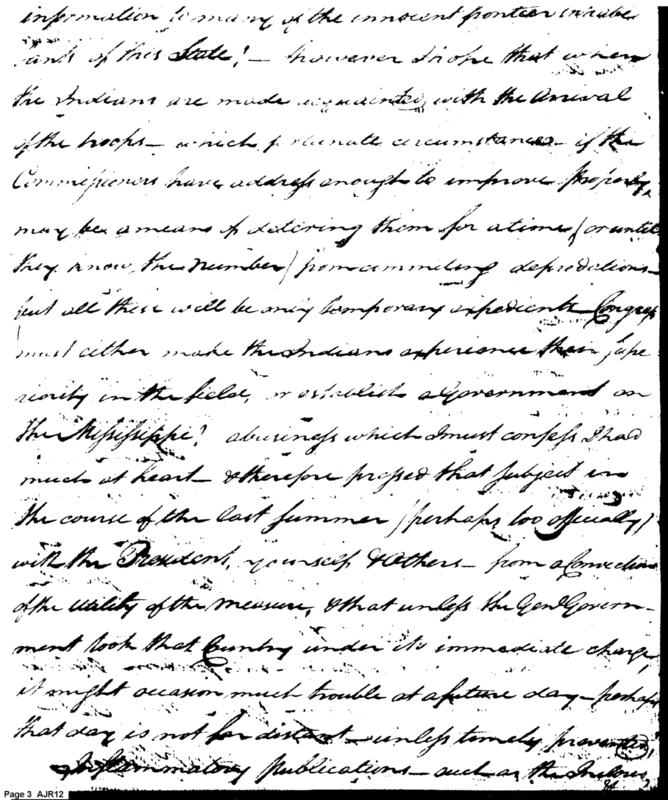 information to many of the innocent frontier inhabi
tants of this State! — however I hope that when
the Indians are made acquainted with the Arrival
of the troops — which fortunate circumstance if the
Commissioners have address enough to improve properly,
may be a means of detering them for a time (or until
they know the number) from commiting depredations —
but all these will be only temporary expedients Congress
must either make the Indians experience their supe
riority in the field, or establish a Government on
the Mississippi! a business which I must confess I had
much at heart — & therefore pressed that subject in
the course of the last Summer (perhaps too officially)
with the President, yourself & Others — from a Conviction
of the utility of the measure, & that unless the Genl Govern-
ment took that Country under its immediate charge,
it might occasion much trouble at a future day — perhaps
that day is not far distant — unless timely prevented!
Inflammatory publications — such as the Inclosed